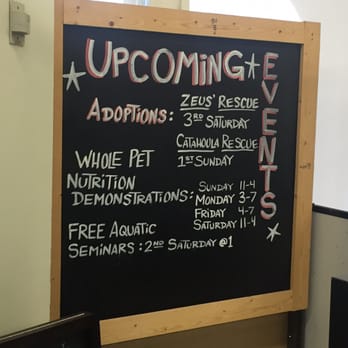 UPCOMING
EVENTS
ADOPTIONS: ZEUS' RESCUE
3RD SATURDAY
CATAHOULA RESCUE
1ST SUNDAY
WHOLE PET
NUTRITION
DEMONSTRATIONS:
SUNDAY 11-4
MONDAY 3-7
FRIDAY 4-7
SATURDAY 11-4
FREE AQUATIC
SEMINARS: 2ND SATURDAY @1